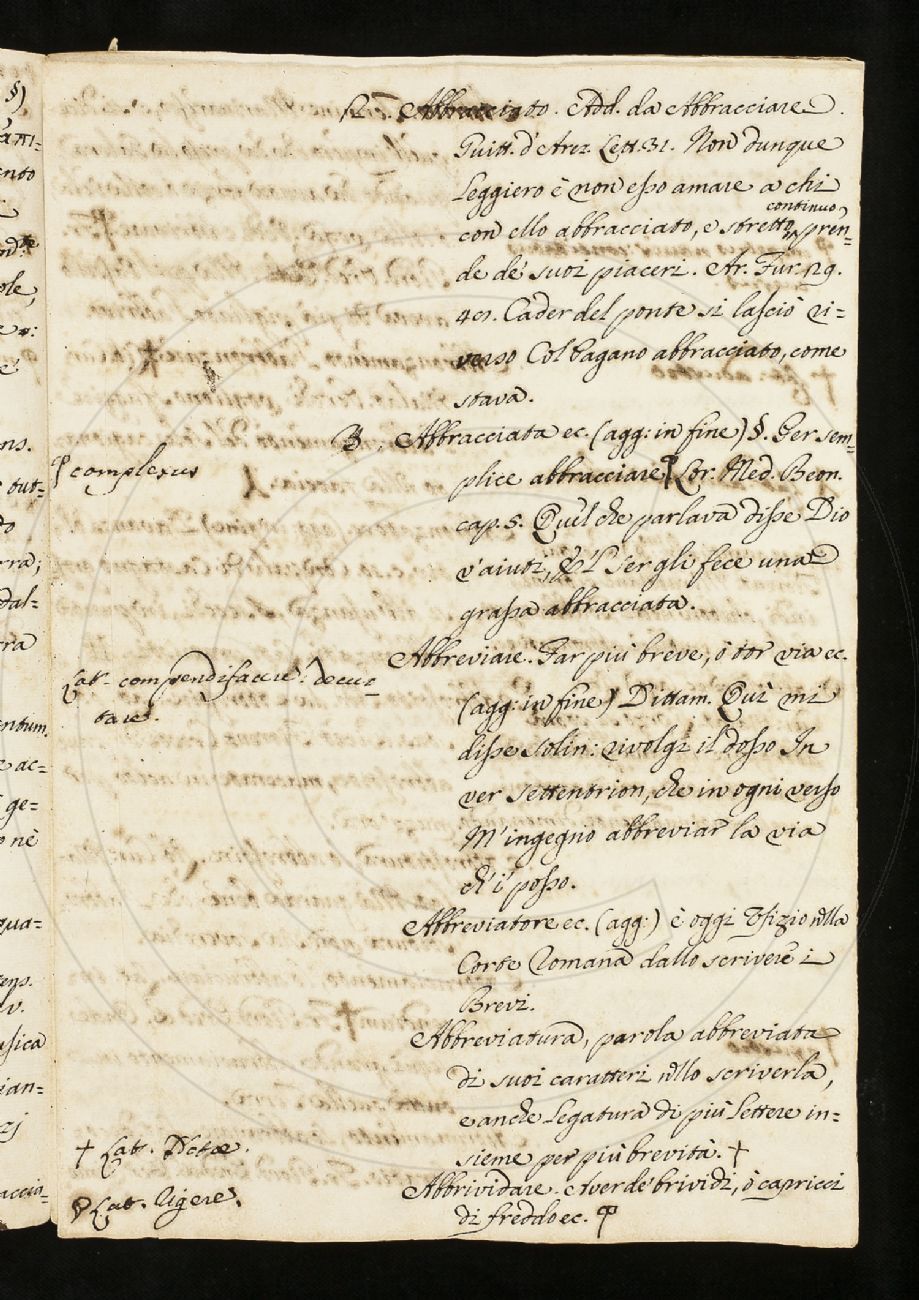 12. Abbracciato. Add. da Abbracciare.
Guitt. d'Arez. Lett. 31. Non dunque
Leggiero è non esso amare a chi
con ello abbracciato, e stretto in continuo pren=
de de' suoi piaceri. Ar. Fur. 29.
Cader del ponte si lasciò ri=
verso Col Pagano abbracciato, come
stava.
B. Abbracciata ec. (agg: in fine) §. Per sem=
plice abbracciare ꟼ Lor. Med. Beon.
cap. 5. Quel che parlava disse Dio
v'aiuti, E'l Ser gli fece una
grassa abbracciata.
ꟼ complexus
Abbreviare. Far più breve, ò tor via ec.
(agg: in fine) Dittam. Quì mi
disse Solin: rivolgi il dosso In
ver Settentrion, che in ogni verso
M'ingegno abbreviar la via
ch'i' posso.
Lat. compendifacere. decur=
tare.
Abbreviatore ec. (agg:) è oggi Ufizio nella
Corte Romana dallo scrivere i
Brevi.
Abbreviatura, parola abbreviata
di suoi caratteri nello scriverla,
e anche Legatura di più Lettere in=
sieme per più brevità. †
† Lat. Notæ.
Abbrividare. Aver de' brividi, ò capricci
di freddo ec. ꟼ
ꟼ Lat. Rigere.